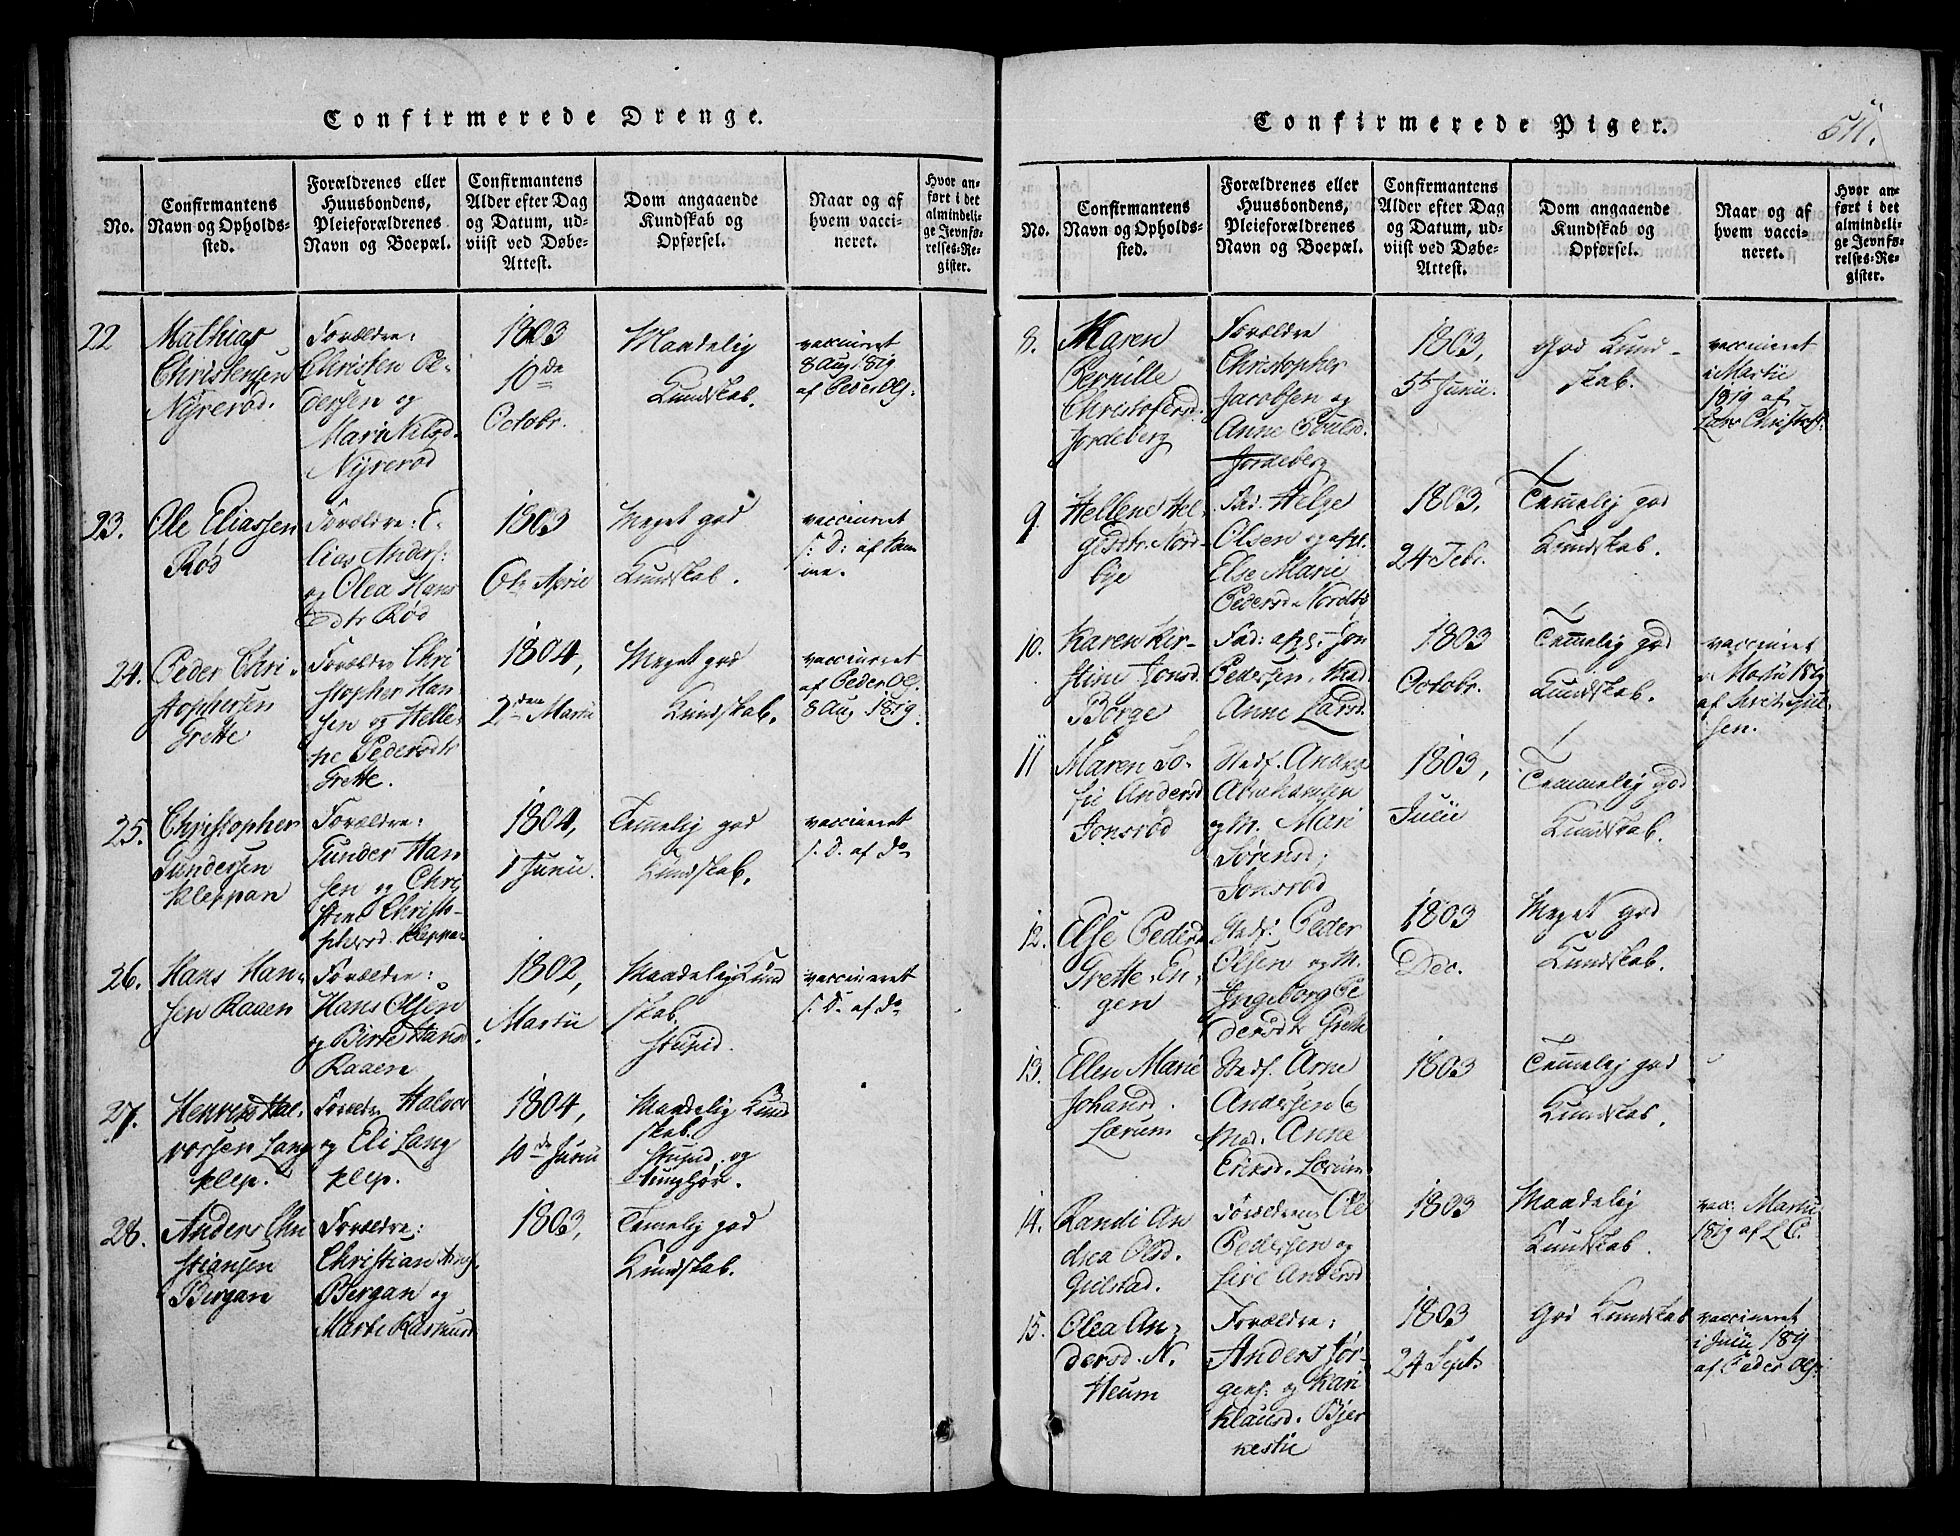 Confirmerede Drenge.
No.
Confirmantens
Navn og Opholds-
sted.
Forældrenes eller
Huusbondens,
Pleieforældrenes
Navn og Boepæl.
Confirmantens
Alder efter Dag
og Datum, ud-
viist ved Døbe-
Attest.
Dom angaaende
Kundskab og
Opførsel.
Naar og af
hvem vacci-
neret.
Hvor an-
ført i det
almindeli-
ge Jevnfø-
relses-Re-
gister.
22
Mathias
Christensen
Nyrerød.
Forældre:
Christen Pe-
dersen og
Mari Nilsd.
Nyrerød
1803
10de
Octobr.
Maadelig
Kundskab.
vaccineret
8 Aug. 1819
af Peder Ols.
23.
Ole Eliassen
Rød
Forældre: E-
lias Anders:
og Olea Hans
Dtr Rød
1803
April
Meget god
Kundskab.
vaccineret
s: D: af
24.
Peder Chri-
stophersen
Grette
Forældre Chri
stopher Han-
sen og Helle-
ne Pedersdtr
Grette.
1804,
2den Martii
Meget god
Kundskab.
vaccineret
af Peder Ol.
8 Aug 1819.
25.
Christopher
Gundersen
Kleppan
Forældre:
Gunder Han
sen og Chri
stine Christo-
phersd. Kleppan
1804,
1 Junii.
Temelig god
Kundskab.
vaccineret
s. D. af do
26.
Hans Han-
sen Raaen
Forældre:
Hans Olsen
og Birte Hansd
Raaen
1802,
Martii
Maadelig Kund
skab.
stupid.
vaccineret
s. D. af do
27.
Henrik Hal-
vorsen Lang
klep.
Forældr. Halvor
og Eli Lang
klep.
1804,
10de Junii
Maadelig Kund
skab.
Stupid. og
tunghør.
28.
Anders Chri
stiansen
Bergan
Forældre:
Christian And.
Bergan og
Marte Rasmusd
1803,
Temelig god
Kundskab.
Confirmerede Piger.
511.
No.
Confirmantens
Navn og Opholds-
sted.
Forældrenes eller
Huusbondens,
Pleieforældrenes
Navn og Boepæl.
Confirmantens
Alder efter Dag
og Datum, ud-
viist ved Døbe-
Attest.
Dom angaaende
Kundskab og
Opførsel.
Naar og af
hvem vacci-
neret.
Hvor an-
ført i det
almindeli-
ge Jevnfø-
relses-Re-
gister.
8.
Maren
Pernille
Christofersd.
Jordeberg
Forældre
Christopher
Jacobsen og
Anne Poulsd.
Jordeberg
1803,
5te Junii.
God Kund-
skab.
vaccineret
i Martii
1819 af
Lars Christofs.
9.
Hellene Hel-
gesdtr. Nord-
bye
Fad. Helge
Olsen og afd.
Else Marie
Pedersd. Nordby
1803,
24 Febr.
Temelig god
Kundskab.
10.
Karen Kir-
stine Jonsd.
Borge
Fad: afd: Jon
Pedersen, Mod
Anne Larsd.
1803
Octobr.
Temelig god
Kundskab.
vaccineret
i Martii 1819
af
sen.
11
Maren So-
fie Andersd
Jonsrød
Stedf. Anders
Abrahamsen
og M. Mari
Sørensd,
Jonsrød
1803,
Julii
Temmelig god
Kundskab.
12.
Else Pedersd
Grette En-
gen
Stedf. Peder
Olsen og M.
Ingeborg Pe
dersdtr Grette
1803
Dec.
Meget god
Kundskab.
13.
Ellen Marie
Johansd.
Lærum
Stedf. Arne
Andersen og
Mod. Anne
Eriksd. Lærum.
1803
Temelig god
Kundskab.
14.
Randi An
drea Olsd.
Gielstad.
Forældrene Ole
Pedersen og
Live Andersd
1803
Maadelig
Kundskab.
vacc. Martii
1819 af L C.
15.
Olea An-
dersd. N.
Heum
Forældre:
Anders Jør-
gens: og Kari
Klausd. Bjer
kestie
1803
24 Sept.
God Kundskab
vaccineret
i Junii 1819
af Peder Ols: